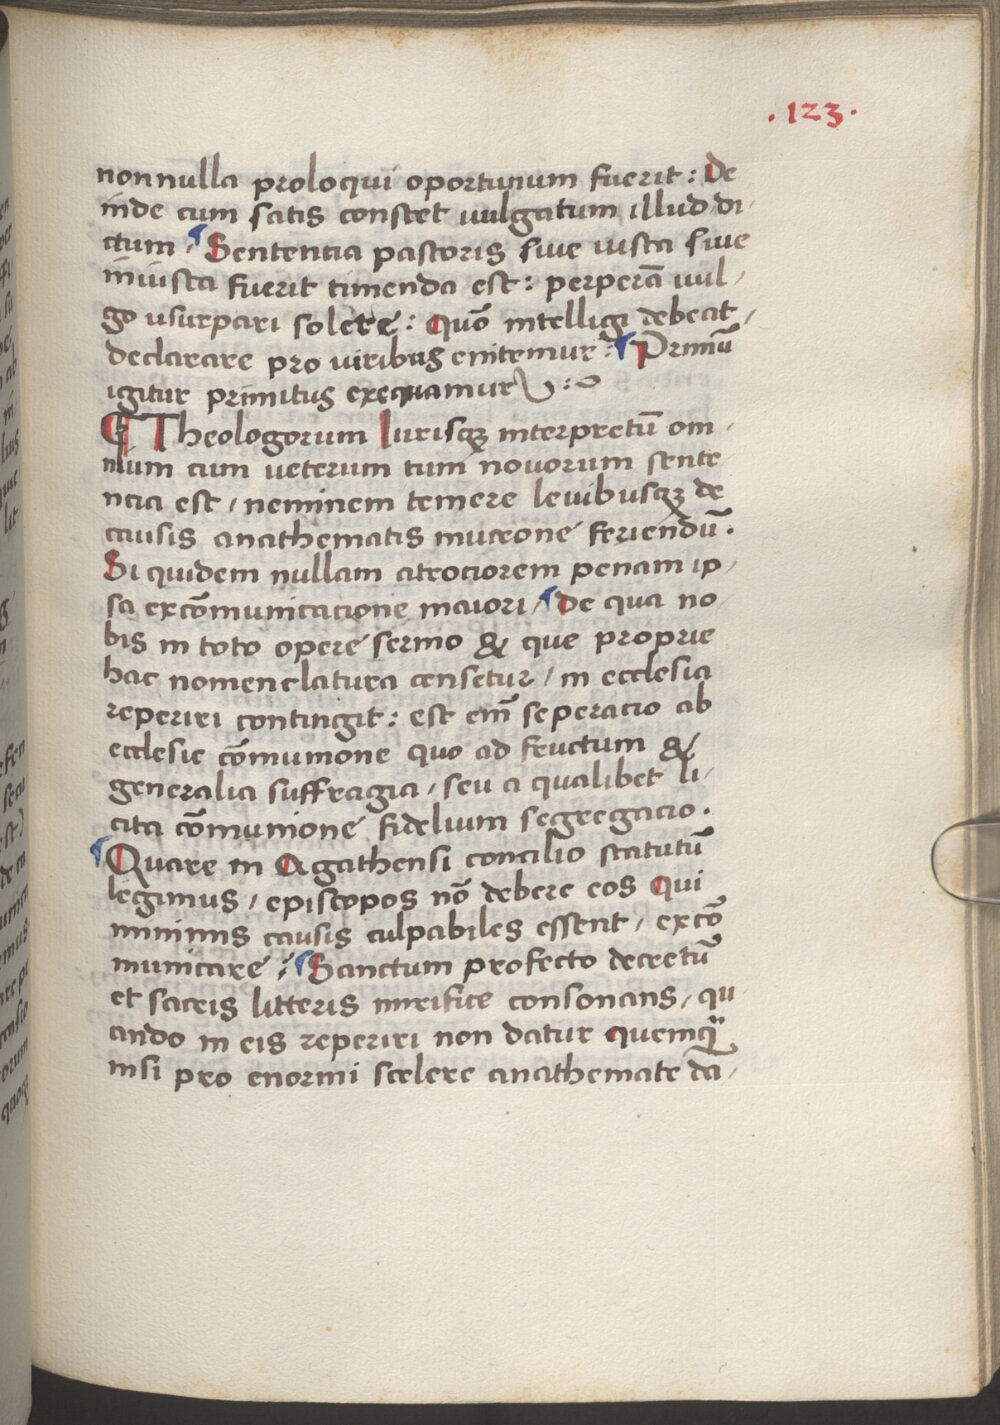 .123.
nonnulla proloqui oportunum fuerit: De
inde cum satis constet uulgatum illud di
ctum / Sententia pastoris siue iusta siue
iniusta fuerit timenda est: perperã uul /
go usurpari solere: Quõ intelligi debeat /
declarare pro uiribus enitemur: Primũ
igitur primitus exequamur :~
Theologorum Iurisqꝫ interpretũ om /
nium cum ueterum tum nouorum sente
ncia est / neminem temere leuibusqꝫ de
causis anathematis mucrone feriendũ.
Si quidem nullam atrociorem penam ip /
sa excõmunicacione maiori / De qua no
bis in toto opere sermo & que proprie
hac nomenclatura censetur / in ecclesia
reperiri contingit: est em̃ seperacio ab
ecclesie cõmunione quo ad fructum &
generalia suffragia / seu a qualibet li /
cita cõmunione fidelium segregacio.
Quare in Agathensi concilio statutũ
legimus / episcopos nõ debere eos Qui
minimis causis culpabiles essent / excõ
municare / Sanctum profecto decretũ
et sacris litteris mirifice consonans / qu
ando in eis reperiri non datur quemq̃
nisi pro enormi scelere anathemate da /